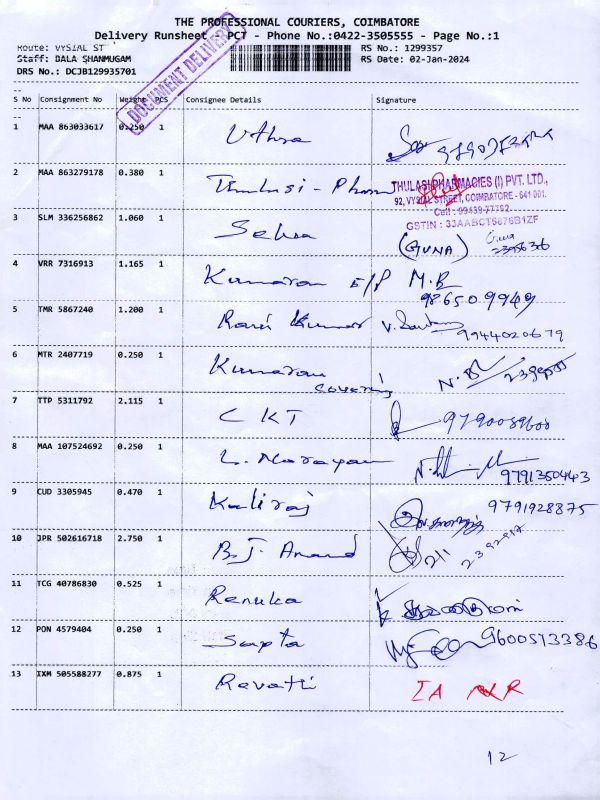 THE PROFESSIONAL COURIERS, COIMBATORE
Delivery Runsheet - PCT - Phone No.:0422-3505555 - Page No.:1
Route: VYSIAL ST RS No.: 1299357
Staff: DALA SHANMUGAM RS Date: 02-Jan-2024
DRS No.: DCJB129935701
DOCUMENT DELIVERY
S No Consignment No Weight PCS Consignee Details Signature
1 MAA 863033617 0.250 1 Uthra
2 MAA 863279178 0.380 1 Thulasi - Pharm
THULASI PHARMACIES (I) PVT. LTD.,
92, VYSIAL STREET, COIMBATORE - 641 001.
Cell : 99439-77792
GSTIN : 33AABCT5676B1ZF
3 SLM 336256862 1.060 1 Selva (GUNA)
4 VRR 7316913 1.165 1 Kumaran E/P M.R
9865099949
5 TMR 5867240 1.200 1 Ravi Kumar 9944020679
6 MTR 2407719 0.250 1 Kumaran
covering
7 TTP 5311792 2.115 1 CKT 9790089600
8 MAA 107524692 0.250 1 L. Narayan
9791350443
9 CUD 3305945 0.470 1 Kaliraj 9791928875
10 JPR 502616718 2.750 1 B.J. Anand
11 TCG 40786830 0.525 1 Renuka
12 PON 4579404 0.250 1 Gupta 9600513386
13 IXM 505588277 0.875 1 Revathi
12